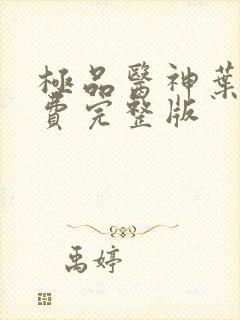 極品醫神葉
費完整版
禹婷